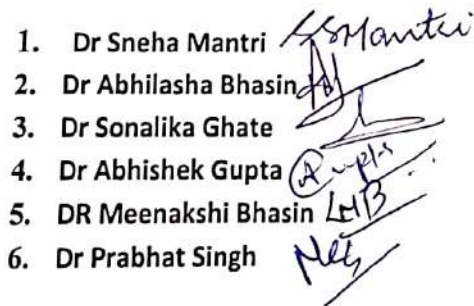 1. Dr Sneha Mantri SSMantri
2. Dr Abhilasha Bhasin
3. Dr Sonalika Ghate
4. Dr Abhishek Gupta A Gupta
5. DR Meenakshi Bhasin LMB
6. Dr Prabhat Singh